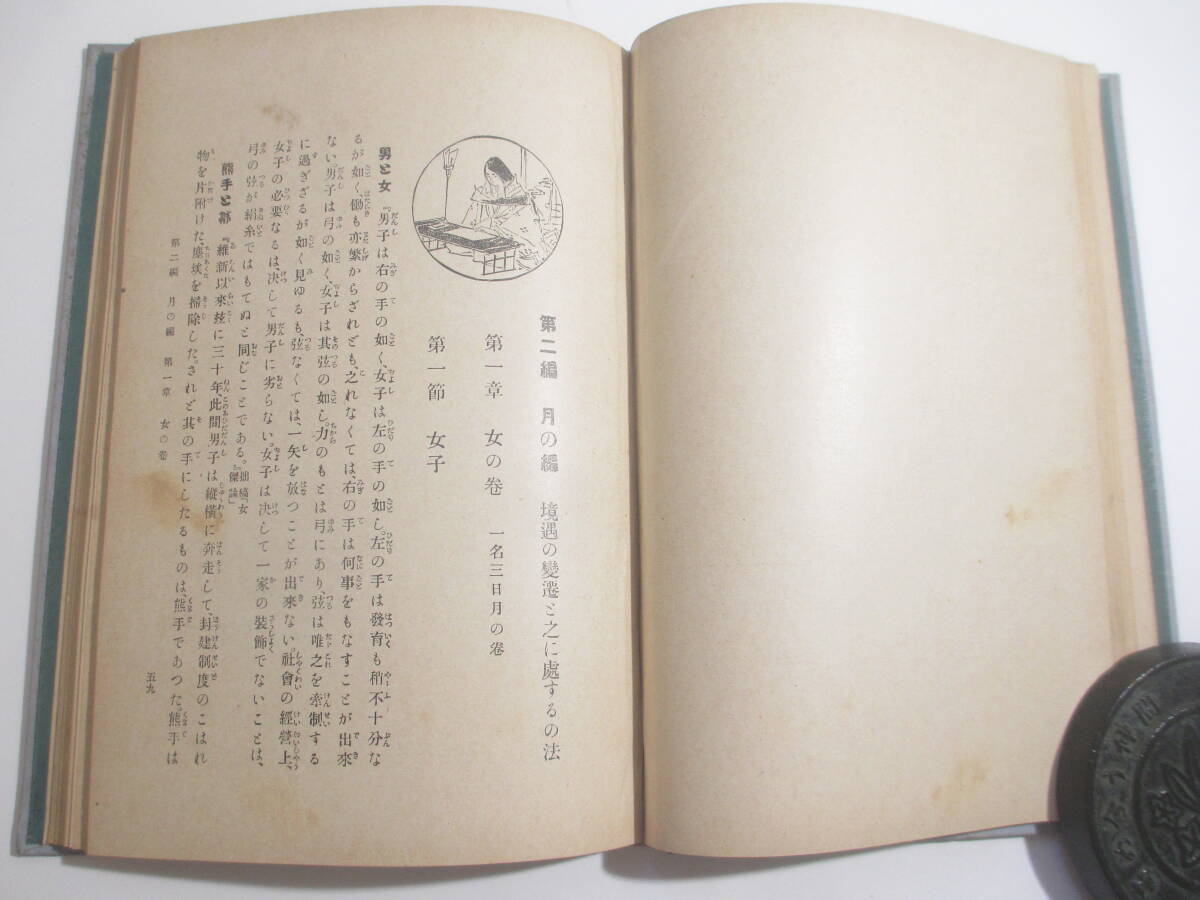 第二編 月の編 境遇の變遷と之に處するの法
第一章 女の卷 一名三日月の卷
第一節 女子
男と女 『男子は右の手の如く、女子は左の手の如し。左の手は發育も稍不十分な
るが如く、働も亦繁からざれども、之れなくては、右の手は何事をもなすことが出來
ない。男子は弓の如く、女子は其弦の如し。力のもとは弓にあり、弦は唯之を牽制する
に過ぎざるが如く見ゆるも、弦なくては、一矢を放つことが出來ない。社會の經營上、
女子の必要なるは、決して男子に劣らない。女子は決して一家の裝飾でないことは、
弓の弦が絹糸ではもてぬと同じことである。』
拙稿「女
傑論」
熊手と箒 『維新以來玆に三十年、此間男子は縱橫に奔走して、封建制度のこはれ
物を片附けた、塵埃を掃除した。されど其の手にしたるものは、熊手であつた。熊手は
第二編 月の編 第一章 女の卷
五九